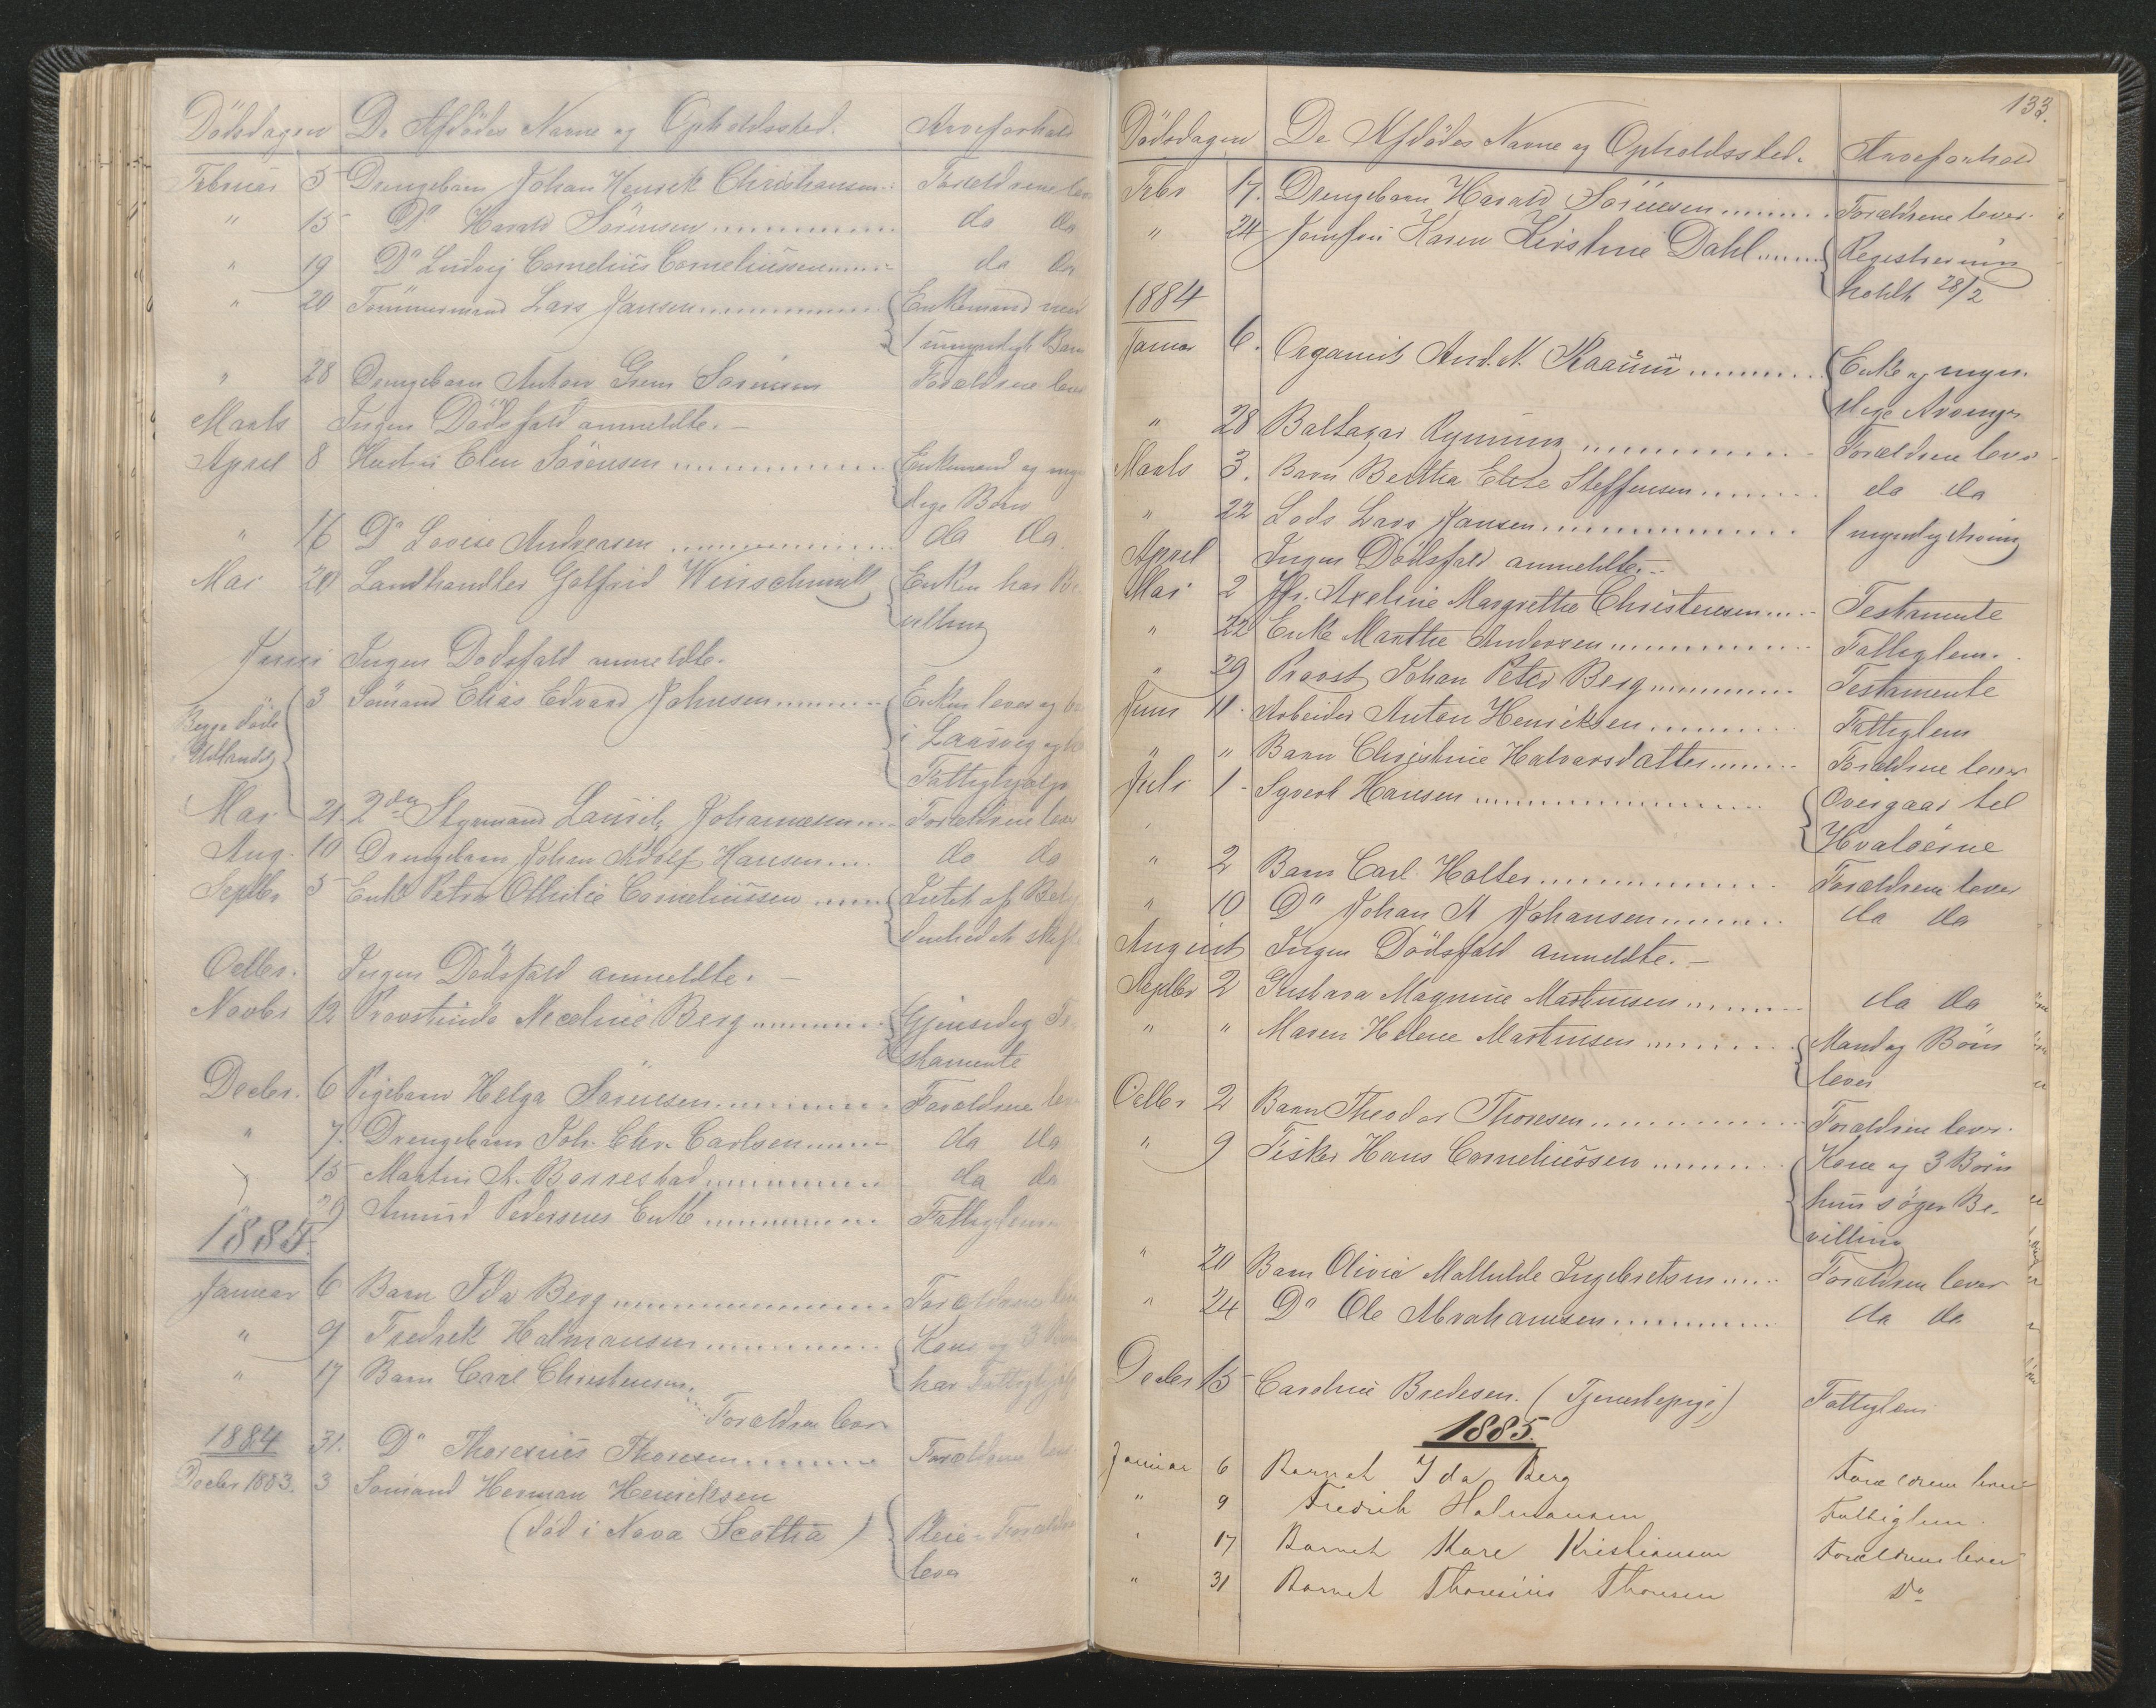 Dödsdagen De Afdödes Navne og Opholdssted. Arveforhold
Februar 5 Drengebarn Johan Henrik Christiansen Forældrene lever
" 15 Do Harald Sörensen do do
" 19 Do Ludvig Cornelius Corneliussen do do
" 20 Tömmermand Lars Jansen Enkemand med
1 umyndigt Barn
" 28 Drengebarn Anton Sörensen Forældrene lever
Marts Ingen Dödsfald anmeldte. —
April 8 Hustru Elen Sörensen Enkemand og myn
dige Börn
" 16 Do Lovise Andersen do do.
Mai 20 Landhandler Gotfrid Winschmitt Enken har Be
villing
Juni Ingen Dödsfald anmeldte.
3 Sömand Elias Edvard Johnsen Enken lever og
Begge döde i Laurvig
Udlands Fattighjælp
Mai 21. 2den Styrmand Lauritz Johannesen Forældrene lever
Aug. 10 Drengebarn Johan Adolf Hansen do do
Septbr 5 Enke Petra Othilie Corneliussen Intet af Bety
denhed at skifte
Octbr. Ingen Dödsfald anmeldte. —
Novbr 12 Provstinde Nicoline Berg Gjensidig Te
stamente
Decbr. 6 Pigebarn Helga Sörensen Forældrene lever
" 7. Drengebarn Joh. Chr. Carlsen do do
15 Martin A. Borrestad do do
29 Amund Pedersens Enke Fattiglem
1885.
Januar 6 Barn Ida Berg Forældrene lever
" 9 Fredrik Halmansen Kone og 3 Börn
" 17 Barn Carl Christensen har Fattighjælp
Forældrene lever
1884 31. Do Thoresius Thoresen Forældrene lever
Decbr 1883. 3 Sömand Herman Henriksen
(död i Nova Scothia) Pleie-Forældre
lever
133.
Dödsdagen De Afdödes Navne og Opholdssted. Arveforhold
Febr 17. Drengebarn Harald Sörensen Forældrene lever.
" 24 Jomfru Karen Kirstine Dahl Registrering
holdt 28/2
1884
Januar 6. Organist And. N. Enke og myn-
dige Arvinger
" 28 Baltazar Forældrene lever
Marts 3. Barn Berthe Elise Steffensen do do
" 22 Lods Lars Jansen 1 myndig Arving
April Ingen Dödsfald anmeldte. —
Mai 2 Jfr. Axeline Margrethe Christensen Testamente
" 22 Enke Marthe Andersen Fattiglem.
" 29 Provst Johan Peter Berg Testamente
Juni 11. Arbeider Anton Henriksen Fattiglem
" " Barn Christine Halvorsdatter Forældrene lever
Juli 1 Syvert Hansen Overgaar til
Hvalöerne
" 2 Barn Carl Holter Forældrene lever
" 10 Do Johan A Johansen do do
August Ingen Dödsfald anmeldte. —
Septbr 2 Gustava Magnine Martinsen do do
" " Maren Helene Martinsen Mand og Börn
lever
Octbr 2 Barn Theodor Thoresen Forældrene lever.
" 9 Fisker Hans Corneliussen Kone og 3 Börn
hun söger Be-
villing
" 20 Barn Olivia Mathilde Ingebretsen Forældrene lever
" 24 Do Ole Abrahamsen do do
Decbr 15 Caroline Bredesen. (Tjenestepige) Fattiglem
1885.
Januar 6 Barnet Ida Berg Forældrene lever
" 9 Fredrik Halmansen Fattiglem.
" 17 Barnet Kare Kristiansen Forældrene lever
" 31 Barnet Thoresius Thoresen Do